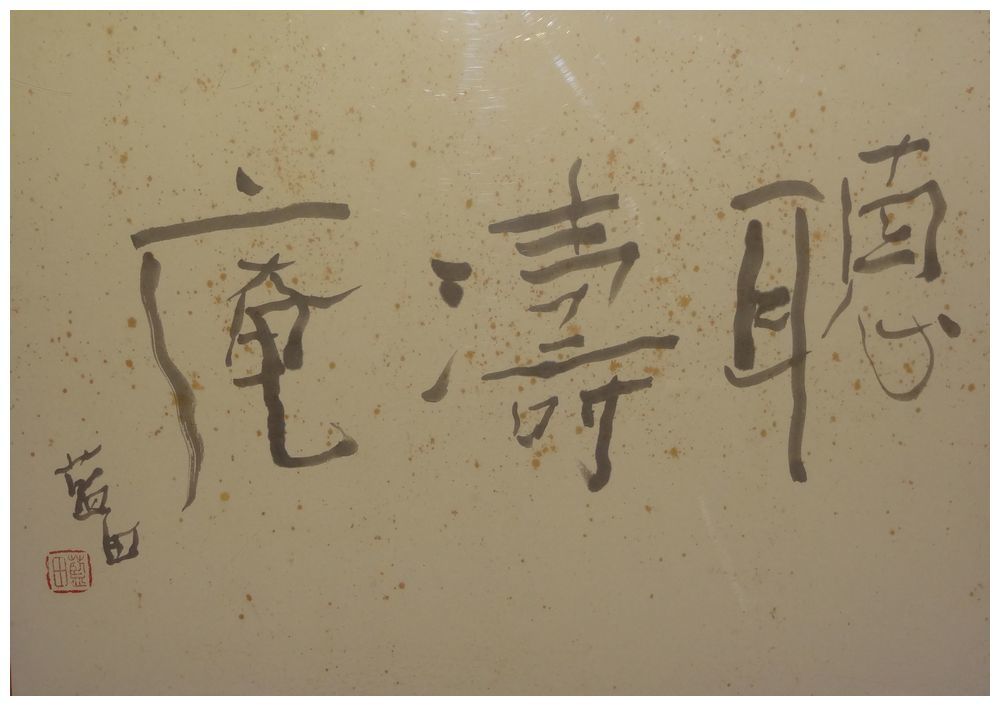 聽濤庵
藍田
藍田